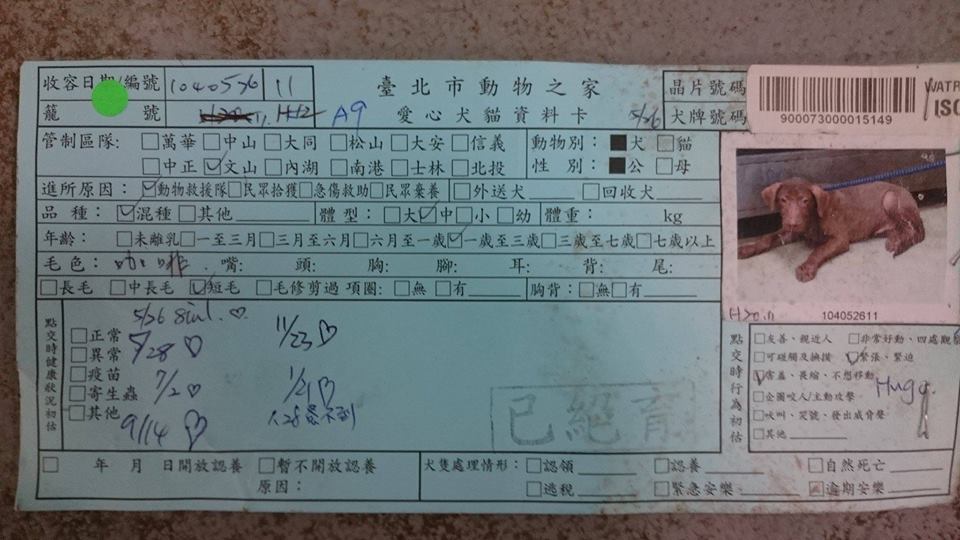 收容日期/編號 1040526 11 臺北市動物之家 晶片號碼 WATR
籠 號 A9 愛心犬貓資料卡 5/26 犬牌號碼 900073000015149 ISO
管制區隊: □萬華□中山□大同 □松山□大安□信義 動物別: ■犬 □貓
□中正☑文山□內湖 □南港□士林□北投 性 別: ■公 □母
進所原因: ☑動物救援隊□民眾拾獲□急傷救助□民眾棄養 □外送犬 □回收犬
品 種: ☑混種□其他 體 型: □大☑中□小□幼 體重: kg
年齡: □未離乳□一至三月□三月至六月□六月至一歲☑一歲至三歲□三歲至七歲□七歲以上
毛色: 咖啡 嘴: 頭: 胸: 腳: 耳: 背: 尾:
□長毛 □中長毛 ☑短毛 □毛修剪過 項圈: □無 □有 胸背: □無□有
104052611
點交時健康狀況初估
5/26
□正常 5/28 ♡ 11/23 ♡
□異常
□疫苗 7/2 ♡ 1/21 ♡
□寄生蟲
□其他 9/14 ♡
已絕育
點交時行為初估
□友善、親近人 □非常好動、四處觀
□可碰觸及撫摸 ☑緊張、緊迫
☑害羞、畏縮、不想移動
□企圖咬人/主動攻擊 Hugo
□吠叫、哭號、發出威脅聲
□其他
□ 年 月 日開放認養 □暫不開放認養 犬隻處理情形: □認領 □認養 □自然死亡
原因: □逃脫 □緊急安樂 ☑逾期安樂